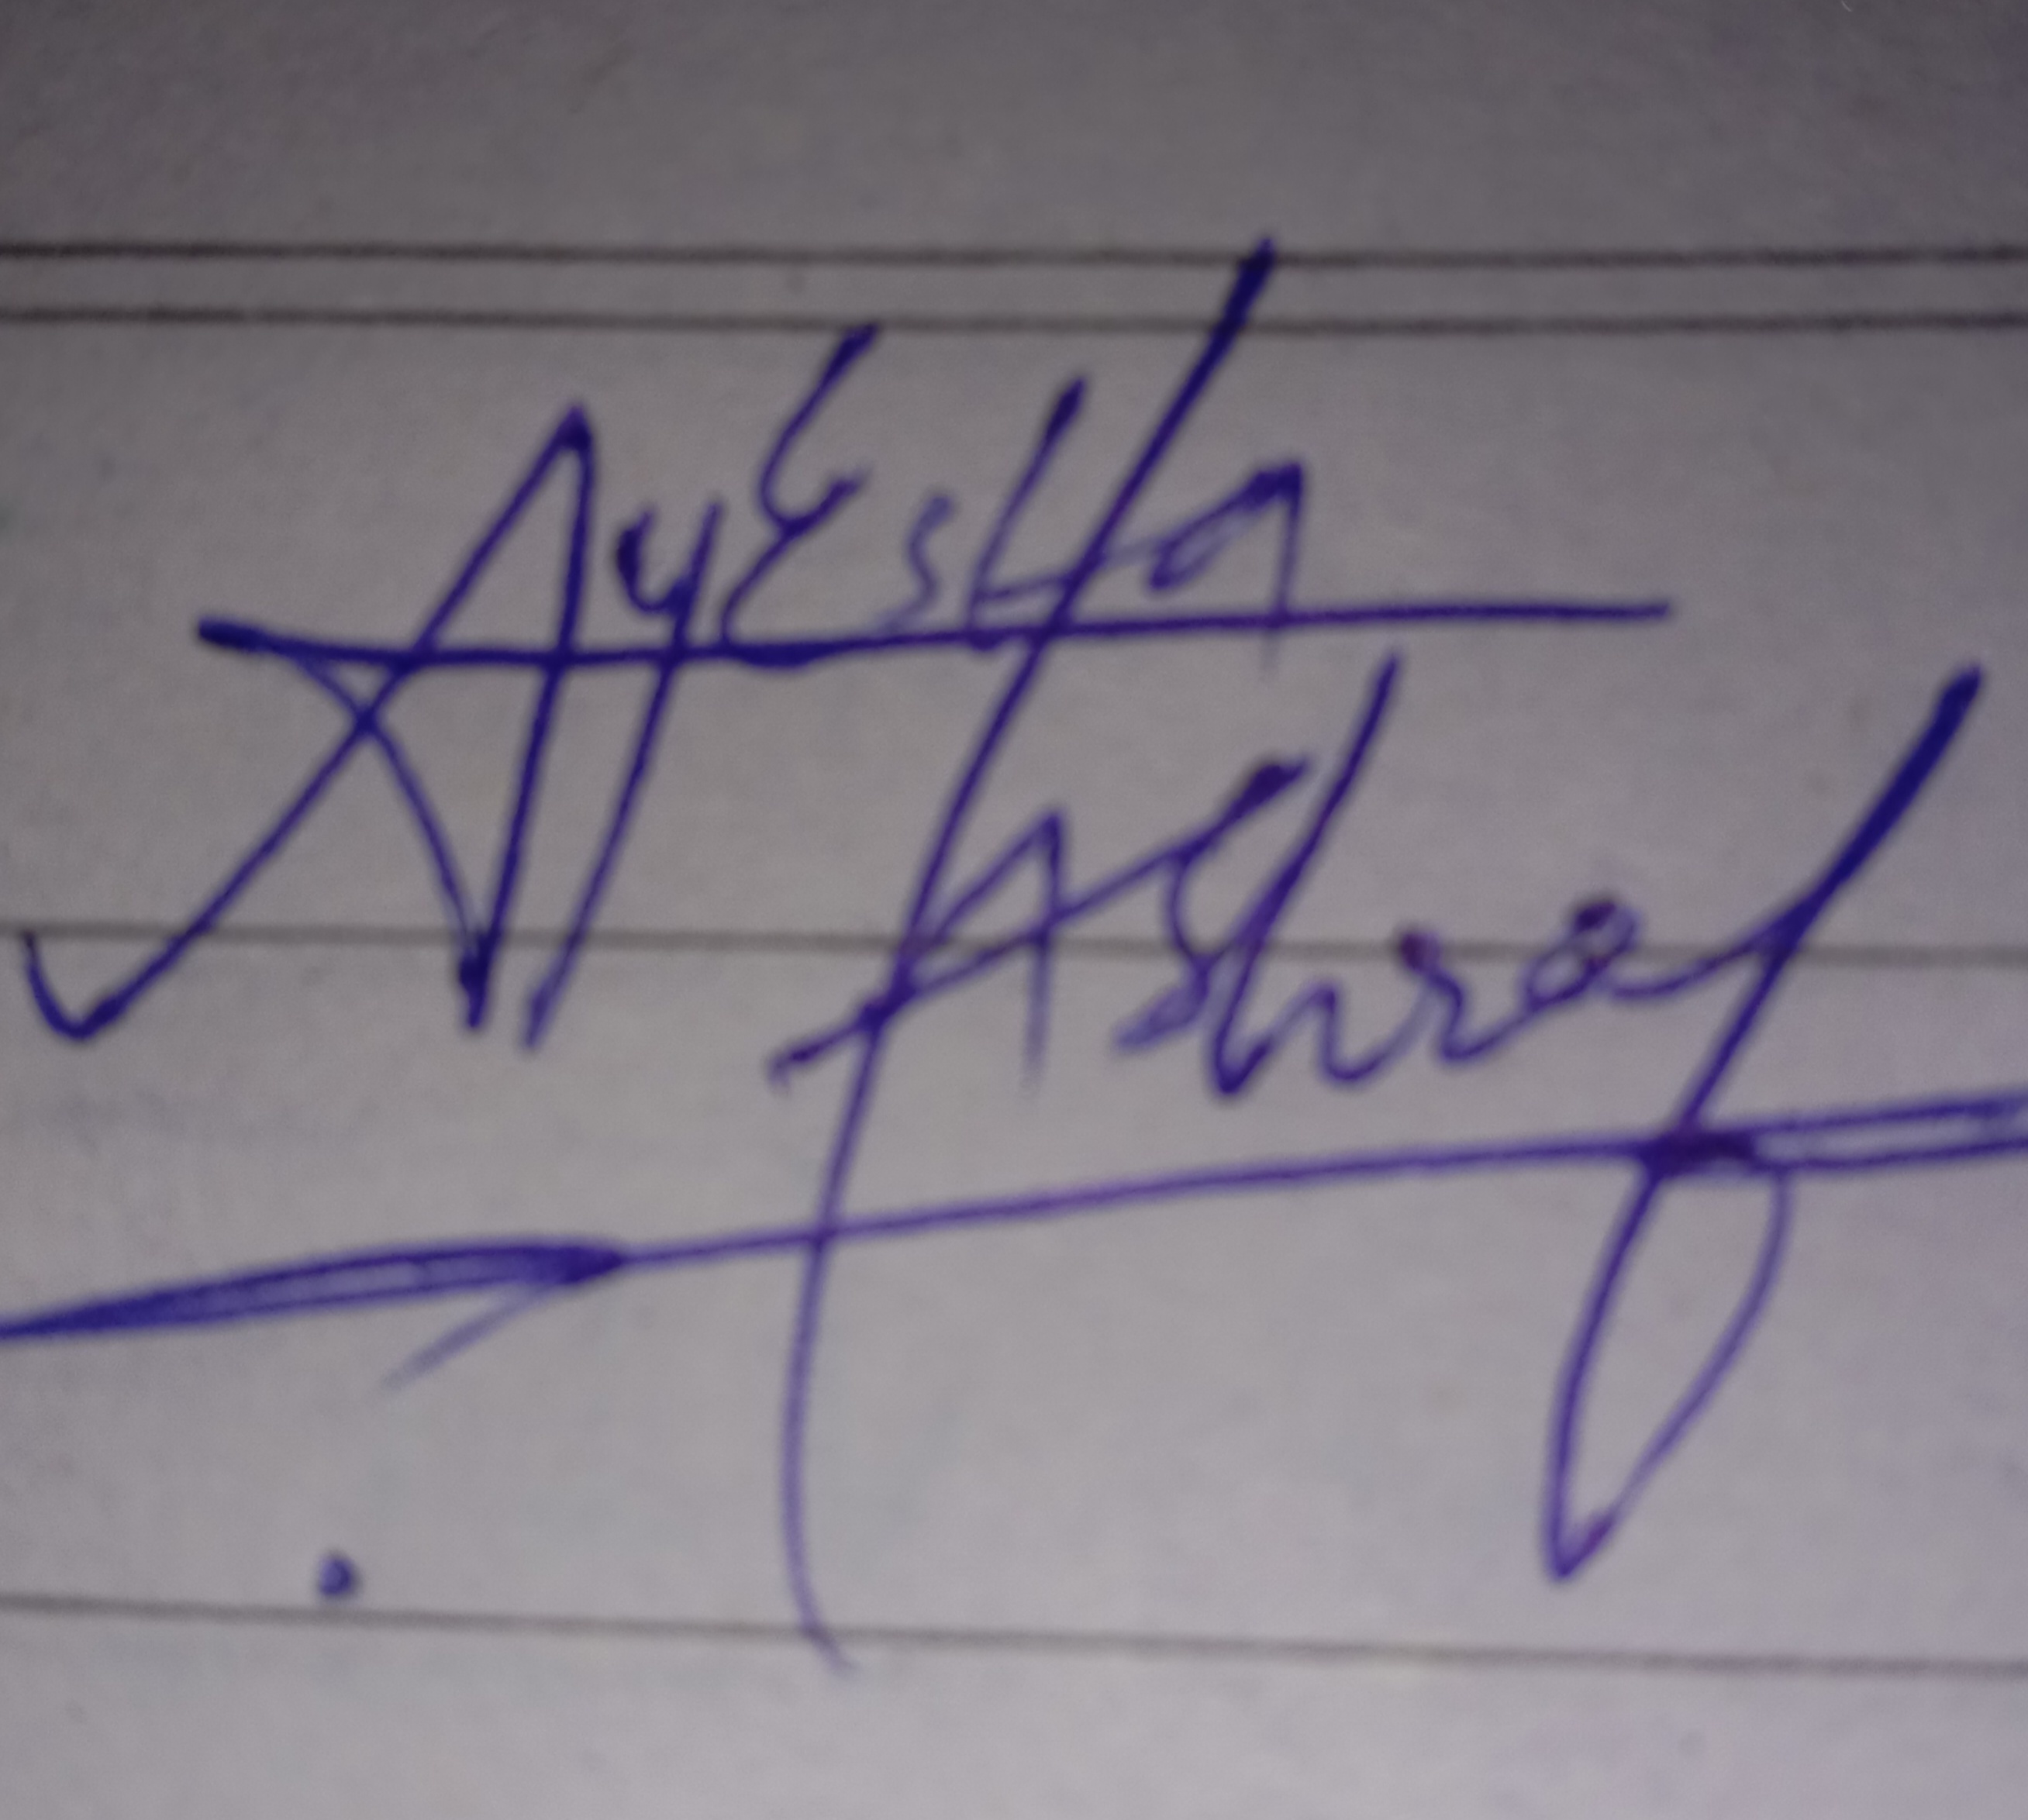 AyEsHa
Ashraf